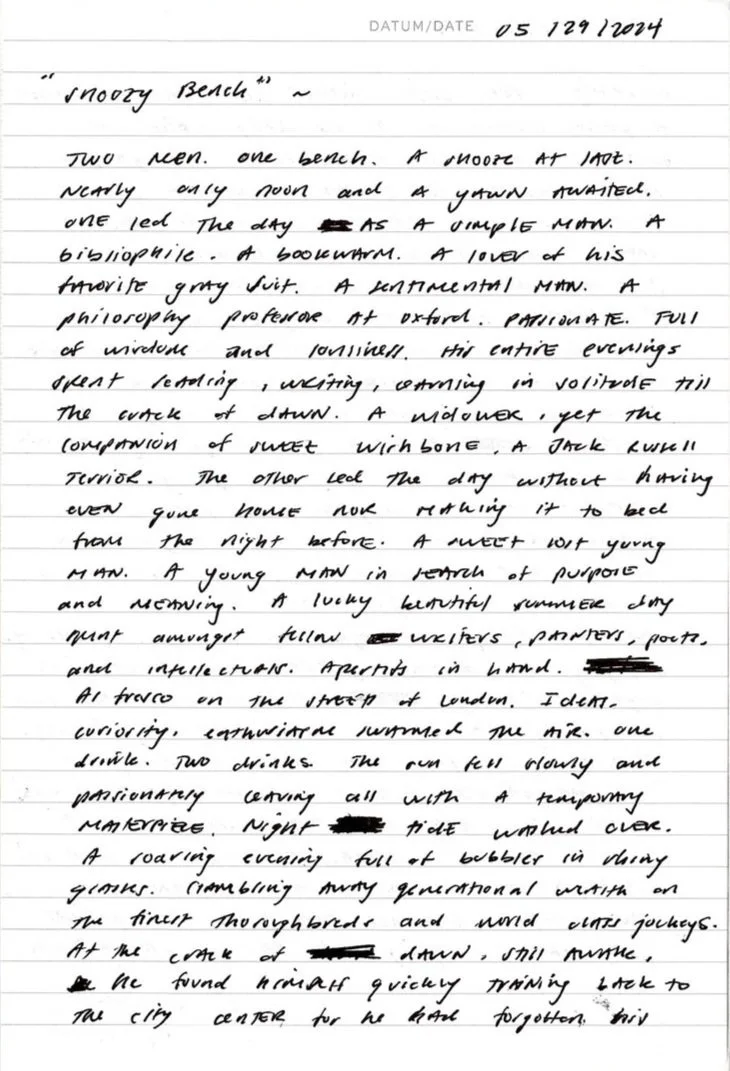 DATUM/DATE 05 /29/2024
"Snoozy Bench" ~
TWO MEN. one bench. A snooze AT last.
Nearly only noon and A YAWN AWAITED.
ONE led The day AS A SIMPLE MAN. A
bibliophile. A BOOKWARM. A LOVER of his
FAVORITE gray Suit. A sentimental MAN. A
philosophy professor At Oxford. PASSIONATE. FULL
of wisdom and lonliness. His entire evenings
spent reading, writing, learning in SOLITUDE till
The crack of DAWN. A WIDOWER, yet the
COMPANION of SWEET Wishbone, A JACK Russell
Terrior. The other led The day without having
EVEN gone HOME NOR MAKING it to bed
from the night before. A SWEET lost young
MAN. A young MAN in SEARCH of PURPOSE
and MEANING. A lucky beautiful summer day
spent amongst fellow WRITERS, PAINTERS, poets,
and intellectuals. Apertifs in HAND.
Al fresco on The STREETS of London. Ideas.
curiosity. enthusiasm swarmed The AIR. one
drink. Two drinks. The sun fell slowly and
passionately leaving all with A temporary
MASTERPIECE. Night tide washed over.
A roaring evening full of bubbles in shiny
glasses. Gambling Away generational wealth on
The finest Thoroughbreds and world class jockeys.
At the crack of DAWN, still AWAKE,
he found himself quickly TRAINING back to
The city CENTER for he had forgotten his